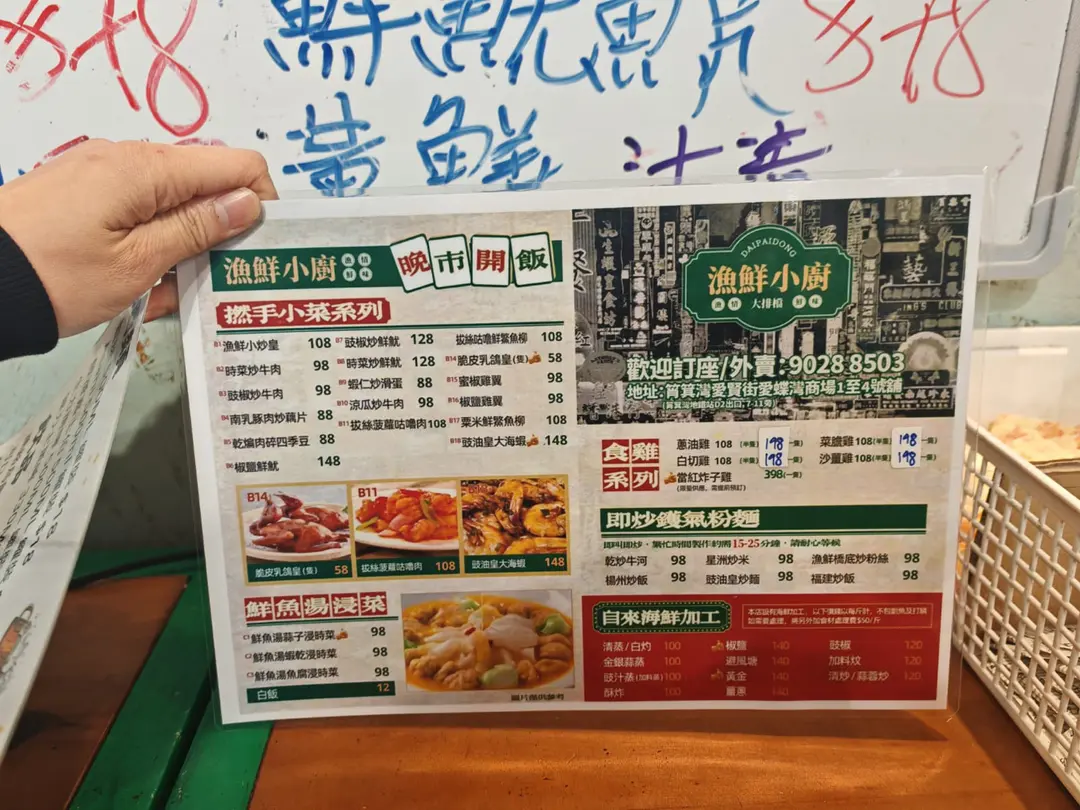 $78 鮮魷魚片 $78
黃鱔
漁鮮小廚 激情鮮味 晚市開飯
撚手小菜系列
B1 漁鮮小炒皇 108
B2 時菜炒牛肉 98
B3 豉椒炒牛肉 98
B4 南乳豚肉炒藕片 88
B5 乾煸肉碎四季豆 88
B6 椒鹽鮮魷 148
B7 豉椒炒鮮魷 128
B8 時菜炒鮮魷 128
B9 蝦仁炒滑蛋 88
B10 涼瓜炒牛肉 98
B11 拔絲菠蘿咕嚕肉 108
拔絲咕嚕鮮鱉魚柳 108
B14 脆皮乳鴿皇(隻) 58
B15 蜜椒雞翼 98
B16 椒鹽雞翼 98
B17 粟米鮮鱉魚柳 108
B18 豉油皇大海蝦 148
B14
脆皮乳鴿皇(隻) 58
B11
拔絲菠蘿咕嚕肉 108
豉油皇大海蝦 148
鮮魚湯浸菜
C1 鮮魚湯蒜子浸時菜 98
C2 鮮魚湯蝦乾浸時菜 98
C3 鮮魚湯魚腐浸時菜 98
白飯 12
圖片祇供參考
DAIPAIDONG
漁鮮小廚
激情 大排檔 鮮味
歡迎訂座/外賣:9028 8503
地址:筲箕灣愛賢街愛蝶灣商場1至4號舖
(筲箕灣地鐵站D2出口,7-11旁)
食雞系列
蔥油雞 108 (半隻) 198 一隻)
白切雞 108 (半隻) 198 一隻)
當紅炸子雞 398(一隻)
(限量供應,需提前預訂)
菜膽雞 108 (半隻) 198 一隻)
沙薑雞 108 (半隻) 198 一隻)
即炒鑊氣粉麵
即叫即炒,繁忙時間製作約需15-25分鐘,請耐心等候
乾炒牛河 98
星洲炒米 98
漁鮮橋底炒粉絲 98
楊州炒飯 98
豉油皇炒麵 98
福建炒飯 98
自來海鮮加工
本店設有海鮮加工,以下價錢以每斤計,不包劏魚及打鱗
如需要處理,將另外加食材處理費$50/斤
清蒸/白灼 100
金銀蒜蒸 100
豉汁蒸(加料蒸) 100
酥炸 100
椒鹽 140
避風塘 140
黃金 140
薑蔥 140
豉椒 120
加料炆 120
清炒/蒜蓉炒 120